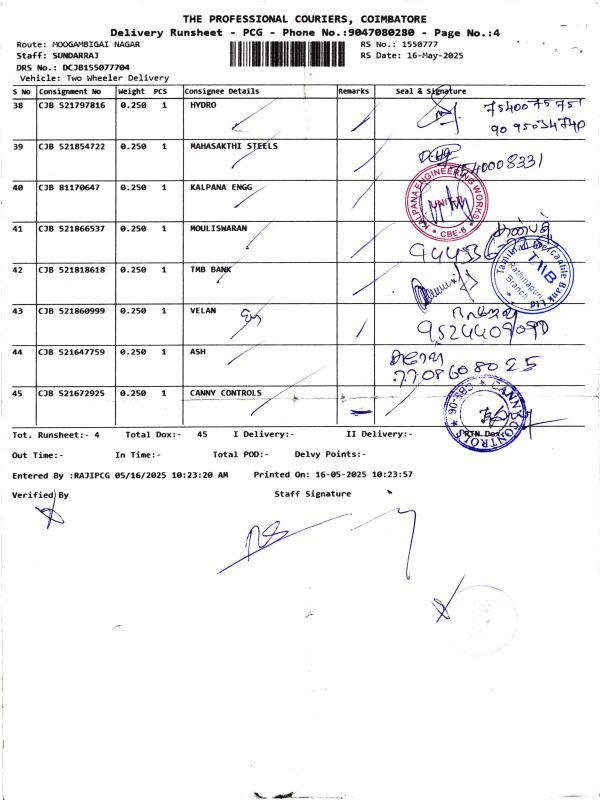 THE PROFESSIONAL COURIERS, COIMBATORE
Delivery Runsheet - PCG - Phone No.:9047080280 - Page No.:4
Route: MOOGAMBIGAI NAGAR
RS No.: 1550777
Staff: SUNDARRAJ
RS Date: 16-May-2025
DRS No.: DCJB155077704
Vehicle: Two Wheeler Delivery
S No Consignment No Weight PCS Consignee Details Remarks Seal & Signature
38 CJB 521797816 0.250 1 HYDRO
39 CJB 521854722 0.250 1 MAHASAKTHI STEELS
40 CJB 81170647 0.250 1 KALPANA ENGG
KALPANA ENGINEERING WORKS
CBE-6
41 CJB 521866537 0.250 1 MOULISWARAN
42 CJB 521818618 0.250 1 TMB BANK
Tamilnad Mercantile Bank Ltd
TMB
Rathinapuri
Branch
43 CJB 521860999 0.250 1 VELAN
44 CJB 521647759 0.250 1 ASH
7708608025
45 CJB 521672925 0.250 1 CANNY CONTROLS
CANNY CONTROLS
Tot. Runsheet:- 4 Total Dox:- 45 I Delivery:- II Delivery:- RTN Dox:-
Out Time:- In Time:- Total POD:- Delvy Points:-
Entered By :RAJIPCG 05/16/2025 10:23:20 AM Printed On: 16-05-2025 10:23:57
Verified By Staff Signature